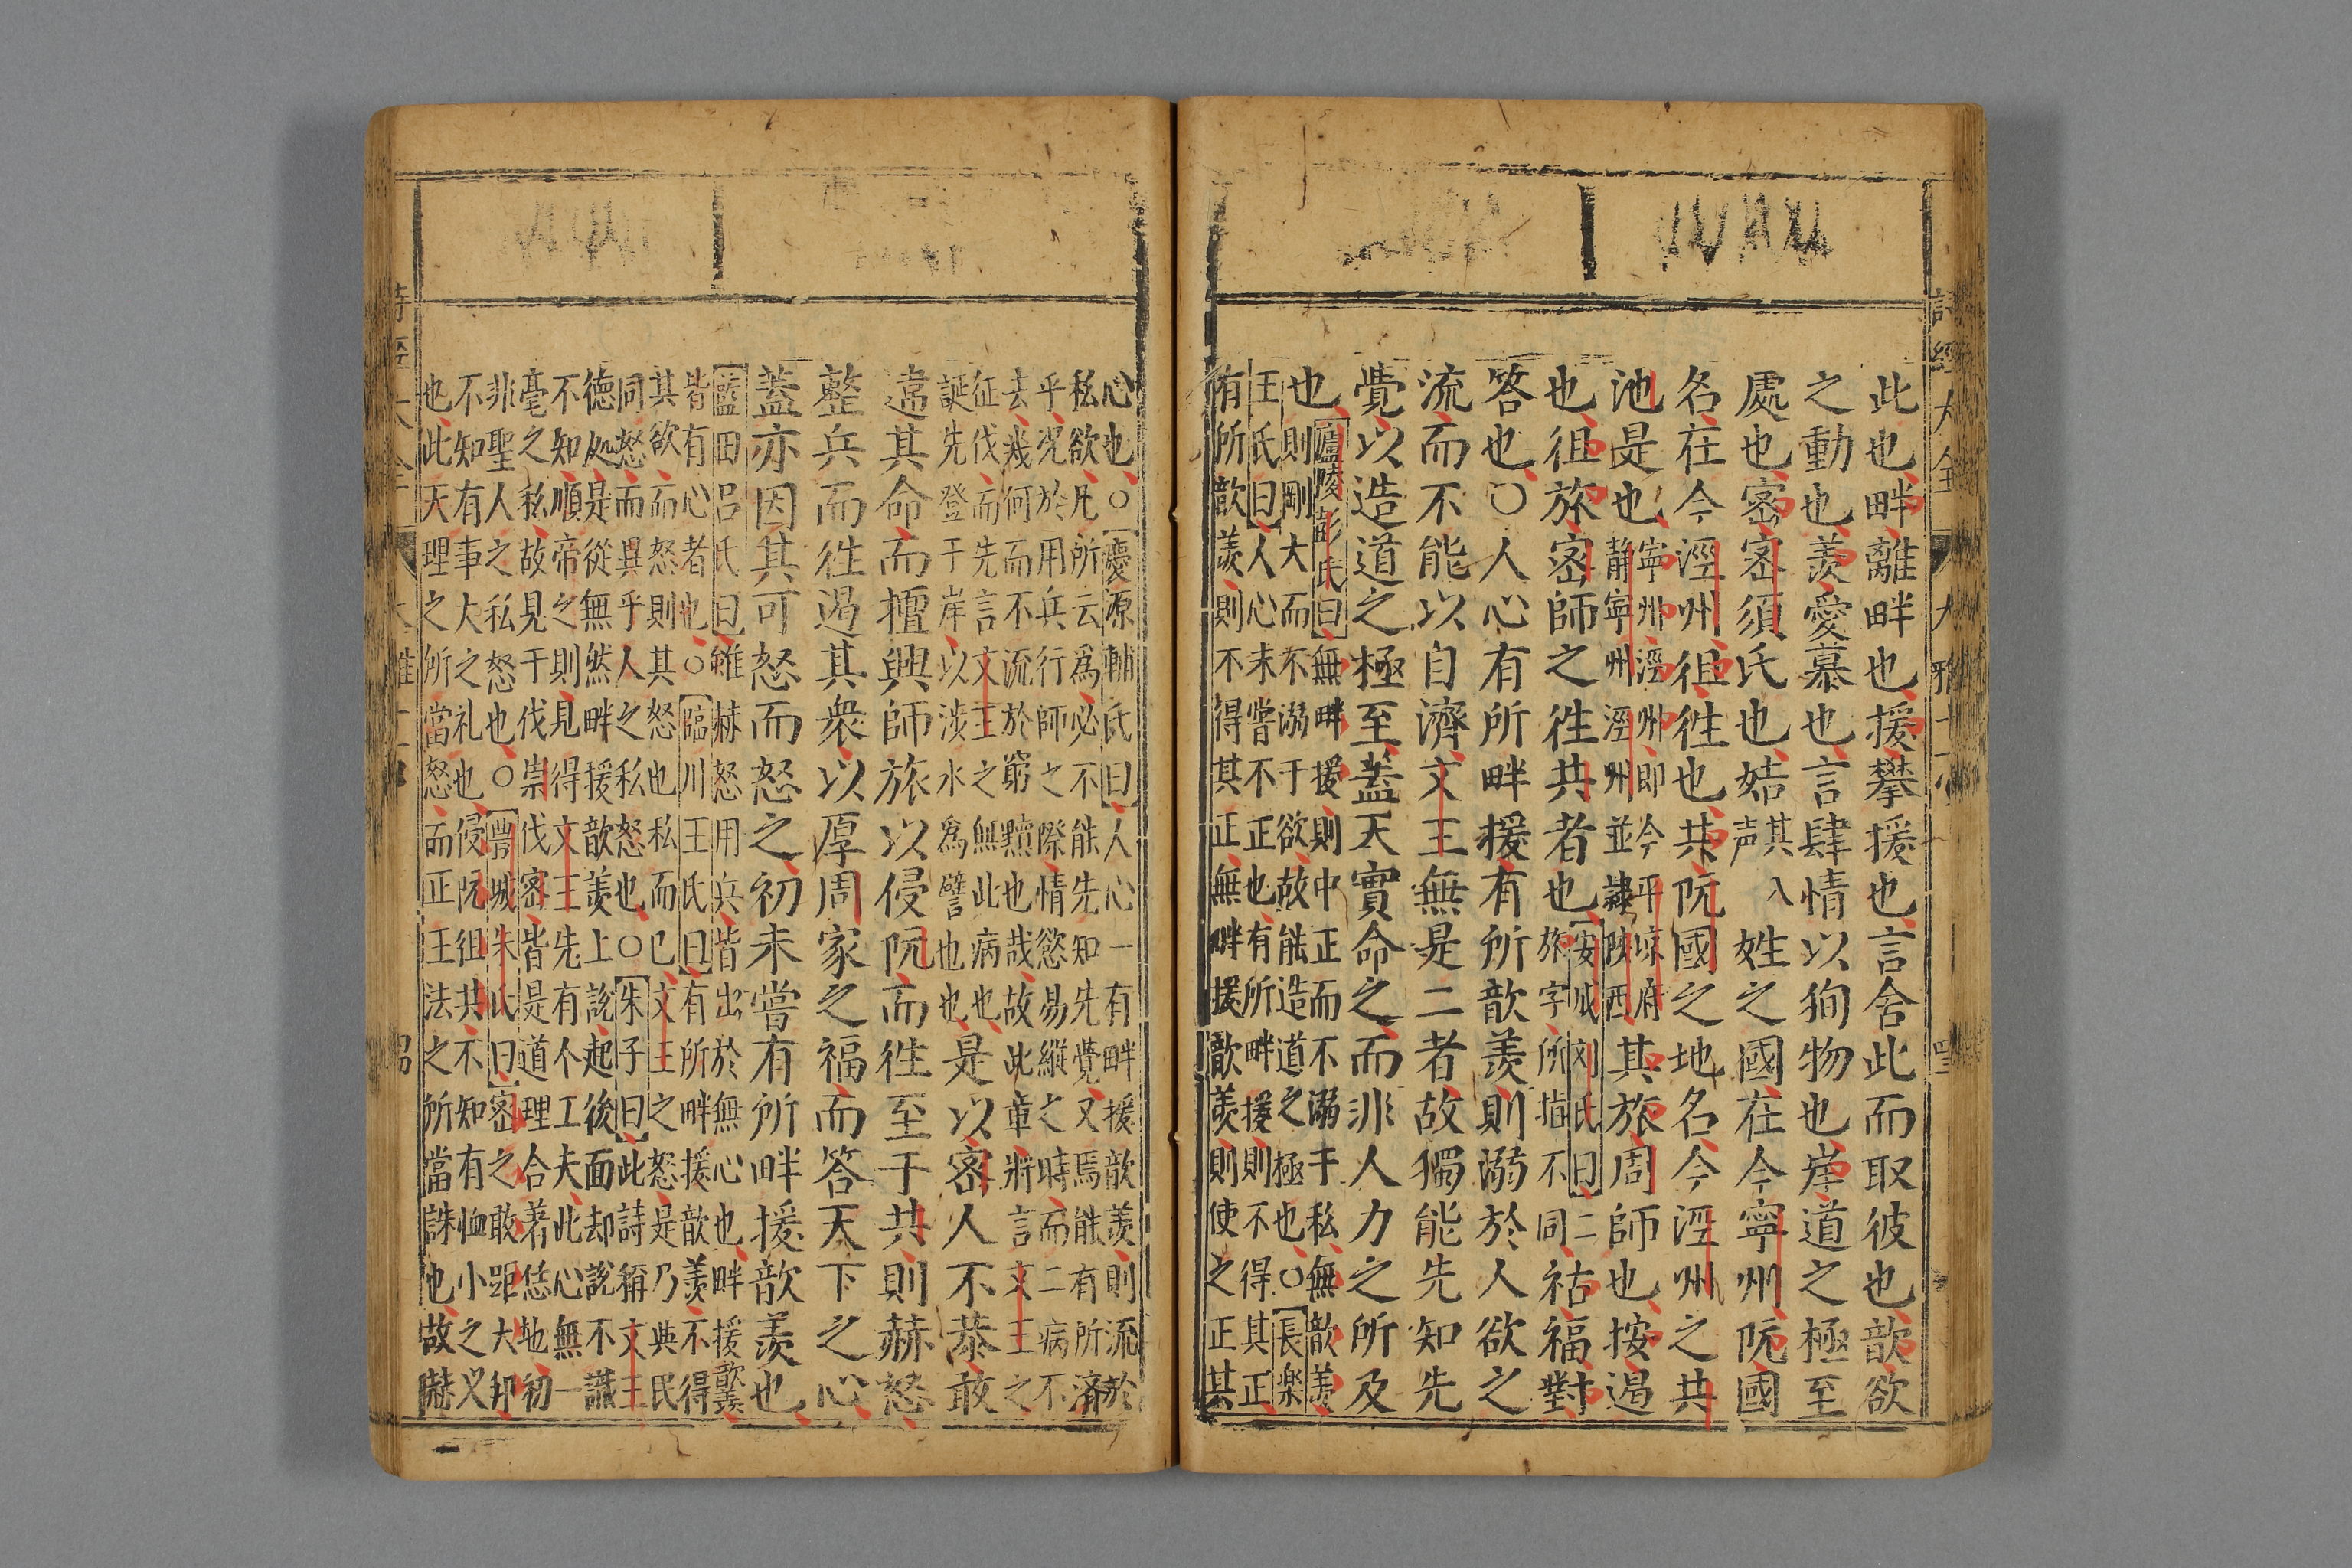 此也畔離畔也援攀援也言舍此而取彼也歆欲
之動也羨愛慕也言肆情以狥物也岸道之極至
處也宻宻須氏也姞其入声姓之國在今寧州阮國
名在今涇州徂徃也共阮國之地名今涇州之共
池是也寧州涇州即今平凉府
静寧州涇州並隸陝西其旅周師也按遏
也徂旅宻師之徃共者也安成刘氏曰二
旅字所指不同祜福對
答也○人心有所畔援有所歆羨則溺於人欲之
流而不能以自濟文王無是二者故獨能先知先
覺以造道之極至蓋天實命之而非人力之所及
也廬陵彭氏曰無畔援則中正而不溺于私無歆羨
則剛大而不溺于欲故能造道之極也○長楽
王氏曰人心未嘗不正也有所畔援則不得其正
有所歆羨則不得其正無畔援歆羨則使之正其
心也○慶源輔氏曰人心一有畔援歆羨則流於
私欲凡所云為必不能先知先覺又焉能有所濟
乎况於用兵行師之際情慾易縱之時而二病不
去幾何而不流於窮黷也哉故此章將言文王之
征伐而先言文王之無此病也
誕先登于岸以涉水為譬也也是以宻人不恭敢
違其命而擅興師旅以侵阮而徃至于共則赫怒
整兵而徃遏其衆以厚周家之福而答天下之心
蓋亦因其可怒而怒之初未嘗有所畔援歆羨也
藍田呂氏曰雖赫怒用兵皆出於無心也畔援歆羨
皆有心者也○臨川王氏曰有所畔援歆羨不得
其欲而怒則其怒也私而已文王之怒是乃典民
同怒而異乎人之私怒也○朱子曰此詩稱文王
德処是從無然畔援歆羨上說起後面却說不識
不知順帝之則見得文王先有个工夫此心無一
毫之私故見于伐崇伐宻皆是道理合著恁地初
非聖人之私怒也○豐城朱氏曰宻之敢距大邦
不知有事大之礼也侵阮徂共不知有恤小之义
也此天理之所當怒而正王法之所當誅也故赫